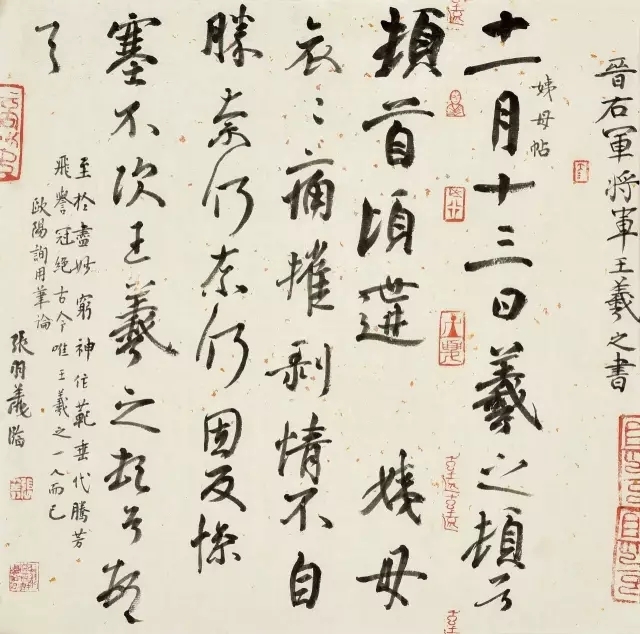 晉右軍将軍王羲之書
姨母帖
十一月十三日羲之頓首
頓首頃遘姨母
哀〻痛摧剥情不自
勝奈何奈何因反慘
塞不次王羲之頓首頓
首
至於盡妙窮神作範垂代騰芳
飛譽冠絕古今唯王羲之一人而已
歐陽詢用筆論
張羽臨